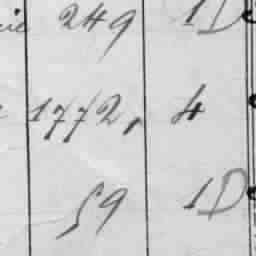 249 1D
1772, 4
59 1D